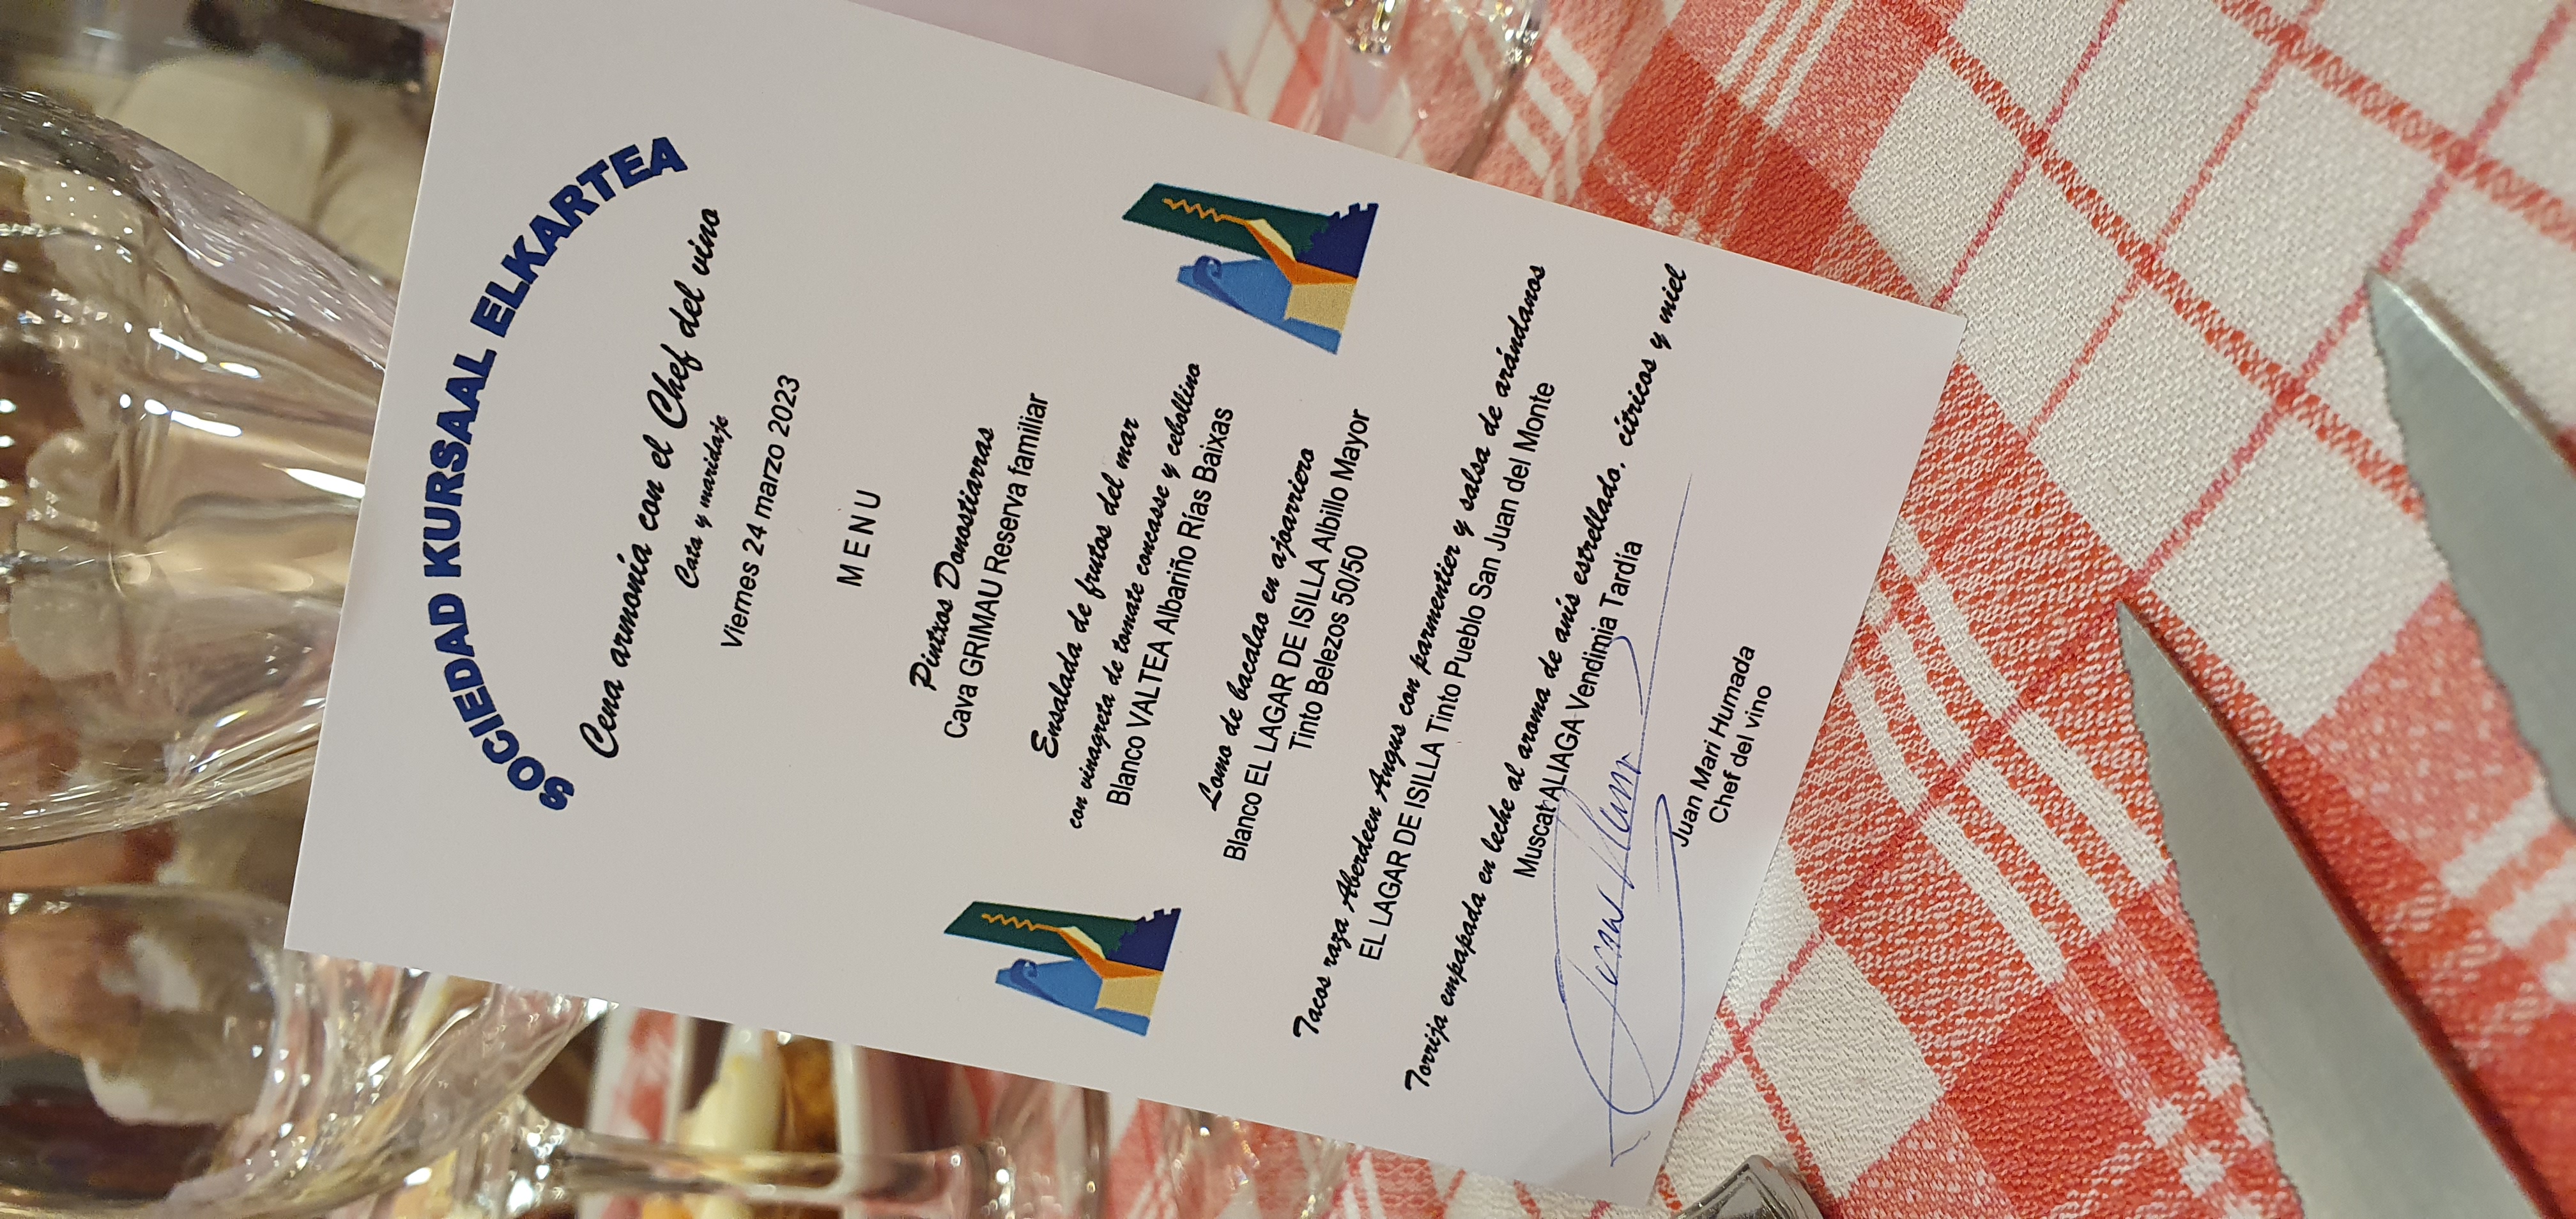 SOCIEDAD KURSAAL ELKARTEA
Cena armonía con el Chef del vino
Cata y maridaje
Viernes 24 marzo 2023
MENU
Pintxos Donostiarras
Cava GRIMAU Reserva familiar
Ensalada de frutos del mar
con vinagreta de tomate concasse y cebollino
Blanco VALTEA Albariño Rías Baixas
Lomo de bacalao en ajoarriero
Blanco EL LAGAR DE ISILLA Albillo Mayor
Tinto Belezos 50/50
Tacos raza Aberdeen Angus con parmentier y salsa de arándanos
EL LAGAR DE ISILLA Tinto Pueblo San Juan del Monte
Torrija empapada en leche al aroma de anís estrellado, cítricos y miel
Muscat ALIAGA Vendimia Tardía
Juan Mari Humada
Chef del vino